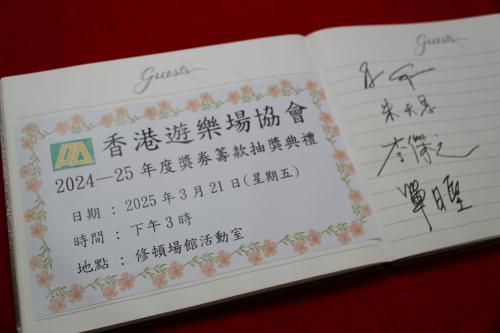 Guests
香港遊樂場協會
2024—25 年度獎券籌款抽獎典禮
日期 : 2025年3月21日(星期五)
時間 : 下午3時
地點 : 修頓場館活動室
Guests
李傑之
單日堅